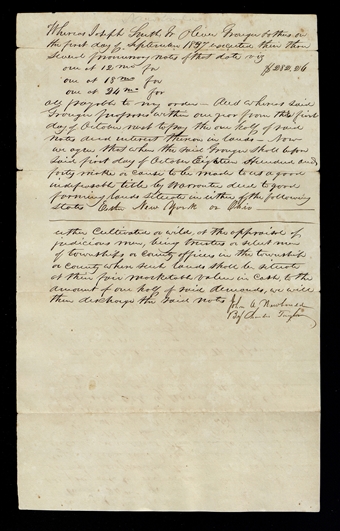 Whereas Joseph Smith Jr Oliver Granger & others on
the first day of September 1837 executed their three
several promissory notes of that date viz
one at 12 mos for
one at 18 mos for
one at 24 mos for
all payable to my order - And whereas said
Granger proposes within one year from the first
day of October next to pay the one half of said
notes and interest thereon in lands - Now
we agree that when the said Granger shall before
said first day of October Eighteen Hundred and
forty make or cause to be made to us a good
indefeasible title by Warrantee deed to good
farming lands situate in either of the following
States New York or Ohio
either Cultivated or wild, at the appraisal of
judicious men, being trustees or select men
of townships or County officers in the township
or County where such lands shall be situate
at their fair marketable value in Cash to the
amount of one half of said demands, we will
then discharge the said notes
John A. Newbould
By